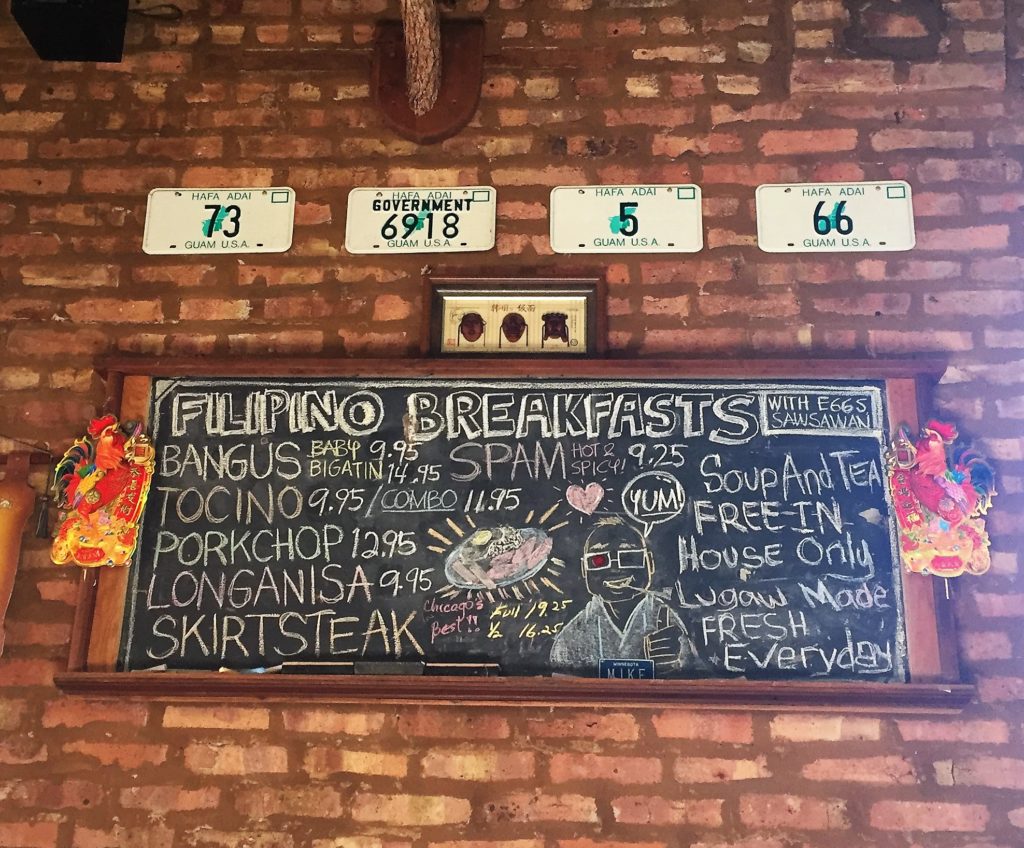 HAFA ADAI
73
GUAM U.S.A.
HAFA ADAI
GOVERNMENT
6918
GUAM U.S.A.
HAFA ADAI
5
GUAM U.S.A.
HAFA ADAI
66
GUAM U.S.A.
FILIPINO BREAKFASTS
WITH EGGS
SAWSAWAN
BANGUS BABY 9.95
BIGATIN 14.95
SPAM HOT & SPICY! 9.25
TOCINO 9.95 / COMBO 11.95
PORKCHOP 12.95
LONGANISA 9.95
SKIRTSTEAK Chicago's Best!! Full 19.25
½ 16.25
YUM!
Soup And TEA
FREE-IN
House Only
Lugaw Made
FRESH
Everyday
MINNESOTA
MIKE